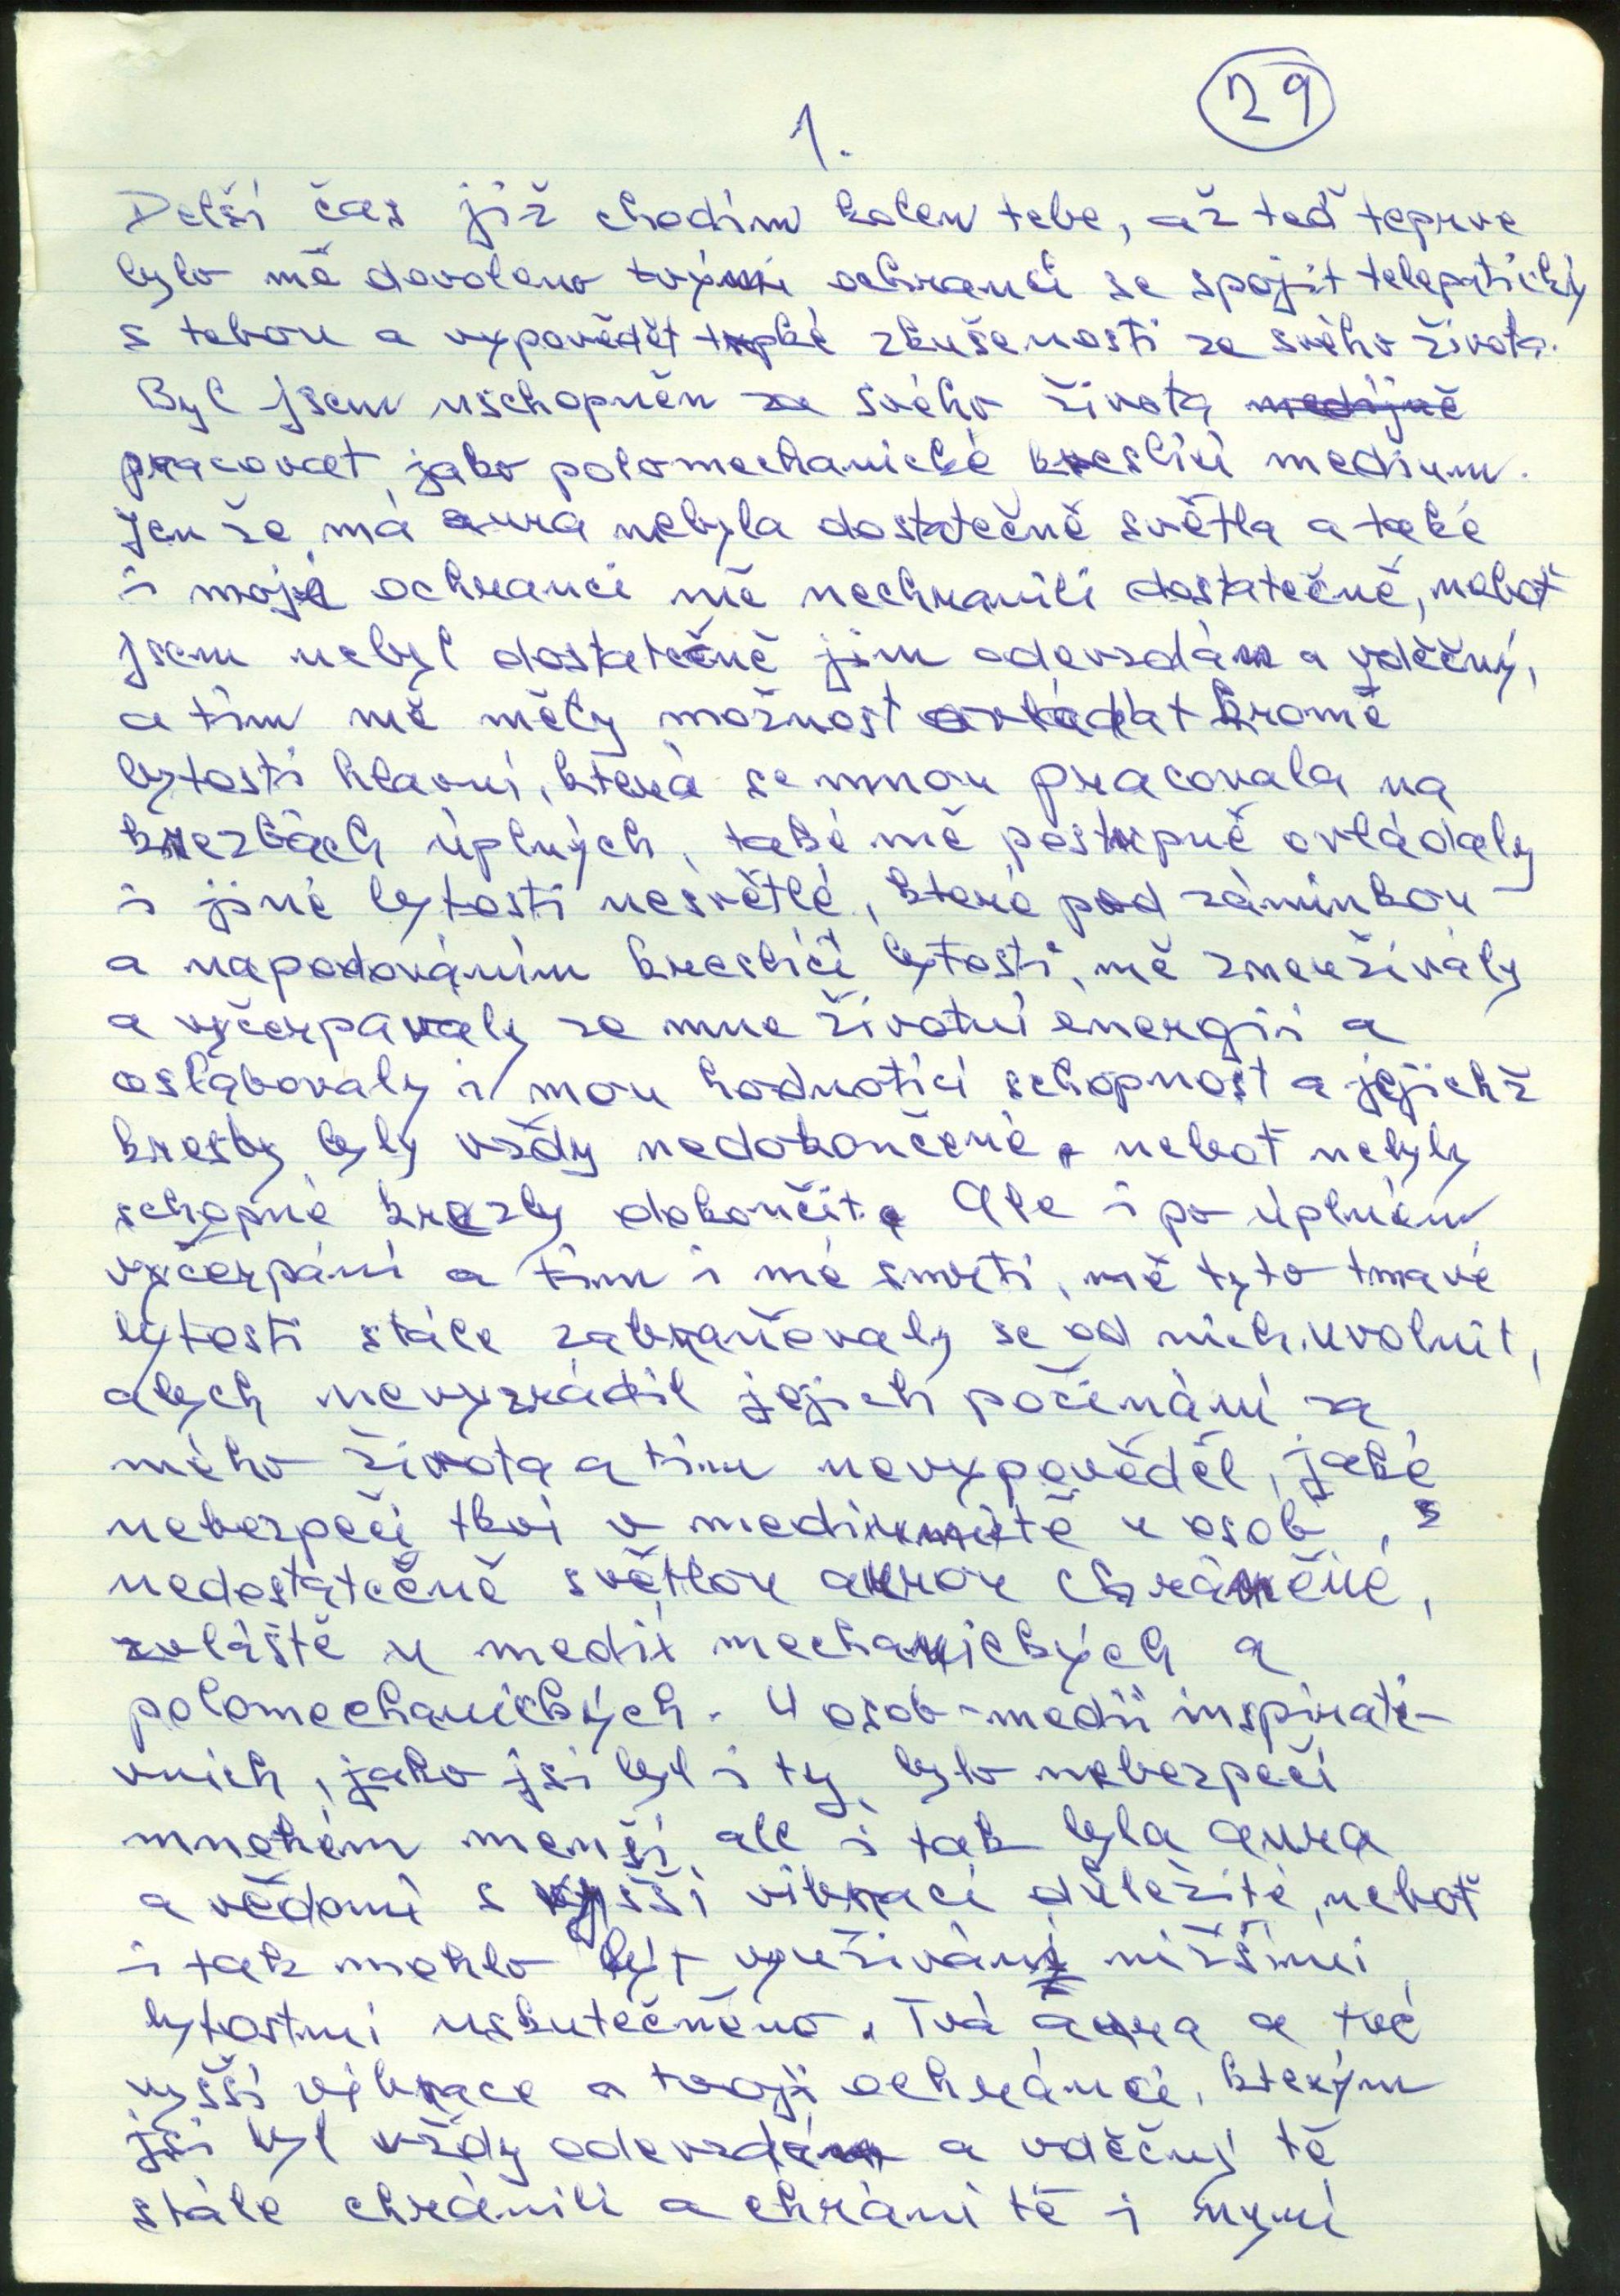 29
1.
Delší čas již chodím kolem tebe, až teď teprve
bylo mě dovoleno tvými ochranci se spojit telepaticky
s tebou a vypovědět trpké zkušenosti ze svého života.
Byl jsem uschopněn za svého života medijně
pracovat, jako polomechanické kreslící medium.
Jen že, má aura nebyla dostatečně světla a také
i moji ochranci mě nechranili dostatečně, neboť
jsem nebyl dostatečně jim odevzdán a vděčný,
a tím mě měly možnost ovládat kromě
bytosti hlavní, která se mnou pracovala na
krezbách úplných, také mě postupně ovládaly
i jiné bytosti nesvětlé, které pod záminkou
a napodováním kreslící bytosti, mě zneuživaly
a vyčerpavaly ze mne životní energii a
oslabovaly i mou hodnotící schopnost a jejichž
kresby byly vždy nedokončené, neboť nebyly
schopné krezby dokončit. Ale i po úplném
vyčerpání a tím i mé smrti, mě tyto tmavé
bytosti stále zabraňovaly se od nich uvolnit,
abych nevyzrádil jejich počínání za
mého života a tím nevypověděl, jaké
nebezpečí tkví v mediumitě u osob, s
nedostatečně světlou aurou chráněné,
zvláště u medií mechanických a
polomechanických. U osob-medií inspirati-
vních, jako jsi byl i ty, bylo nebezpečí
mnohém menší, ale i tak byla aura
a vědomí s vyšší vibrací důležité, neboť
i tak mohlo být využívání nižšími
bytostmi uskutečněno. Tvá aura a tvé
vyšší vibrace a tvoji ochránci, kterým
jsi byl vždy odevzdán a vděčný tě
stále chránili a chrání tě i nyní